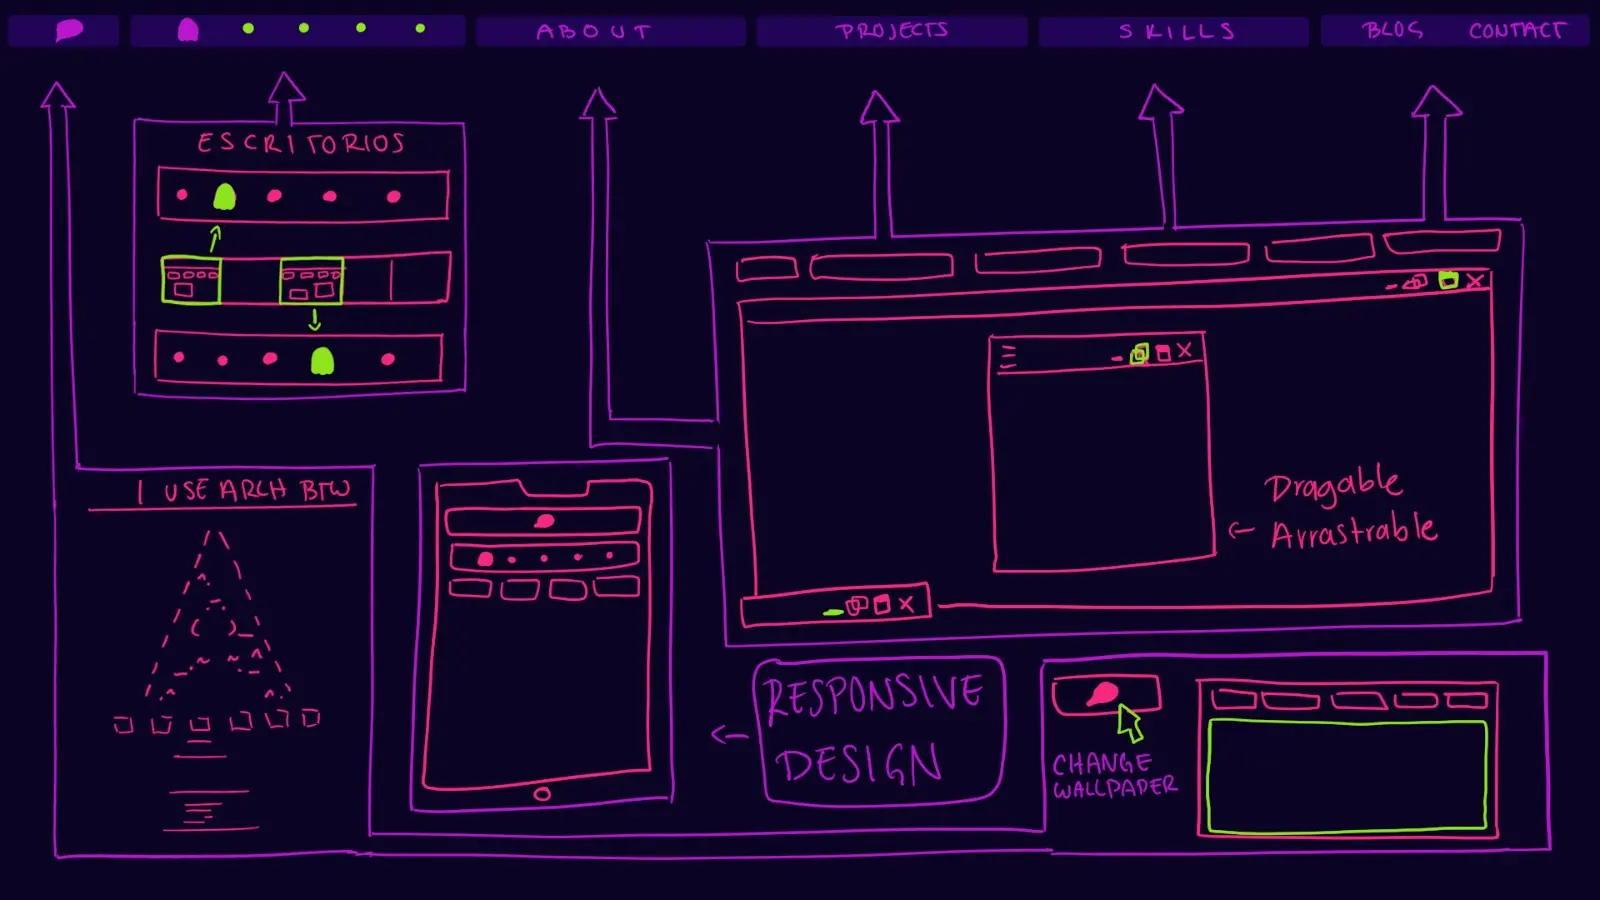 ABOUT
PROJECTS
SKILLS
BLOG
CONTACT
ESCRITORIOS
I USE ARCH BTW
Dragable
Arrastrable
RESPONSIVE
DESIGN
CHANGE
WALLPAPER